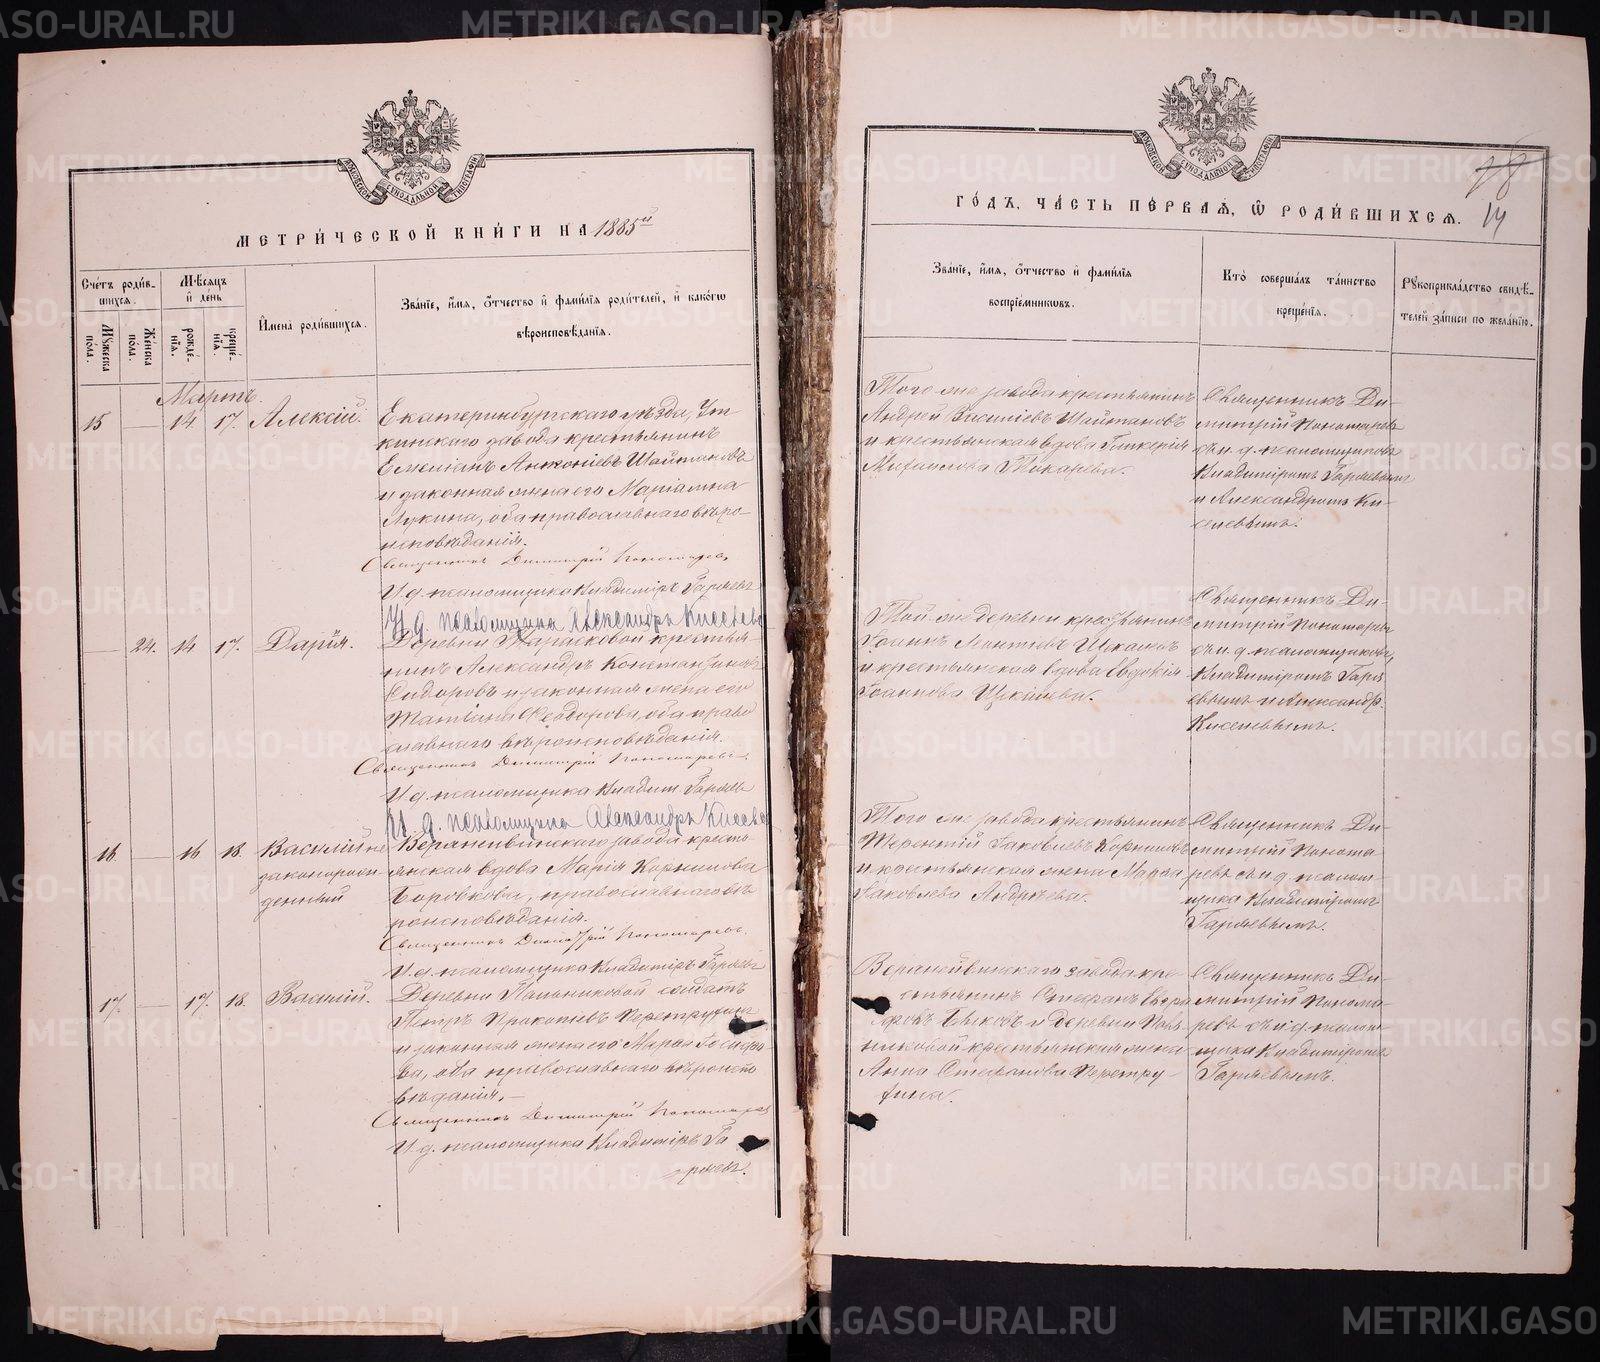 МЕТРИ́ЧЕСКОЙ КНИ́ГИ НА 1885й
Сче́тъ роди́в-
шихся.
Мѣ́сяцъ
и де́нь
Мꙋ́жеска
по́ла.
Же́нска
по́ла.
рожде́-
нїя.
креще́-
нїя.
И҆мена̀ роди́вшихся.
Зва́нїе, и҆́мя, ѻ҆́тчество и҆ фами́лїя роди́телей, и҆ како́гѡ
вѣроисповѣ́данїя.
Мартъ.
15 — 14 17. Алексій.
Екатеринбургскаго уѣзда, Ут
кинскаго завода крестьянинъ
Емеліанъ Антоніевъ Шайтановъ
и законная жена его Маріамна
Лукина, оба православнаго вѣро-
исповѣданія.
Священникъ Димитрій Пономарев
И. д. псаломщика Владиміръ Гаряевъ
И. д. псаломщика Александръ Киселевъ
— 24. 14 17. Дарія.
Деревни Тарасковой крестья-
нинъ Александръ Константиновъ
Сидоровъ и законная жена его
Татіана Ѳеодорова, оба право
славнаго вѣроисповѣданія.
Священникъ Димитрій Пономаревъ.
И. д. псаломщика Владим Гаряевъ
И. д. псаломщика Александръ Киселевъ
16. — 16 18. Василій не
законорож
денный
Верхнейвинскаго завода кресть
янская вдова Марія Корнилова
Боровкова, православнаго вѣ
роисповѣданія.
Священникъ Димитрій Пономаревъ.
И. д. псаломщика Владиміръ Гаряевъ
17. — 17. 18. Василій.
Деревни Пальниковой солдатъ
Петръ Прокопіевъ Перетру
и законная жена его Марія
ва, оба православнаго вѣроиспо
вѣданія. —
Священникъ Димитрій Пономарев
И. д. псаломщика Владиміръ Га
ряевъ.
ГО́ДЪ, ЧА́СТЬ ПЕ́РВАЯ, Ѡ҆ РОДИ́ВШИХСЯ.
78
14
Зва́нїе, и҆́мя, ѻ҆́тчество и҆ фами́лїя
воспрїе́мникѡвъ.
Кто̀ соверша́лъ та́инство
креще́нїя.
Рꙋкоприкла́дство свидѣ́-
телей за́писи по жела́нїю.
Того же завода крестьянинъ
Андрей Василіевъ Шайтановъ
и крестьянская вдова Гликерія
Михаилова Токарева.
Священникъ Ди-
митрій Пономаревъ
съ и. д. псаломщиковъ
Владиміромъ Гаряевымъ
и Александромъ Ки-
селевымъ.
Той же деревни крестьянинъ
Іоаннъ Леонтіевъ Щкалевъ
и крестьянская вдова Евдокія
Іоаннова Щкалева.
Священникъ Ди-
митрій Пономаревъ
съ и. д. псаломщиковъ,
Владиміромъ Гаря
евымъ и Александр.
Киселевымъ.
Того же завода крестьянинъ
Терентій Іаковлевъ Корниловъ
и крестьянская жена Марѳа
Іаковлева Андреева.
Священникъ Ди-
митрій Понома
ревъ съ и. д. псалом-
щика Владиміромъ
Гаряевымъ.
Верхнейвинскаго завода кре
стьянинъ Стефанъ
Быковъ и деревни Паль
никовой крестьянская жена
Анна Стефанова Перетру
хина.
Священникъ Ди-
митрій Понома-
ревъ съ и. д. псалом-
щика Владиміромъ
Гаряевымъ.